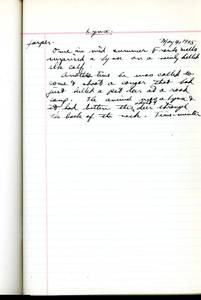 Lynx.
Jasper. May 9, 1945
Once in mid summer Frank Wells
surprised a lynx on a newly killed
elk calf.
Another time he was called to
come & shoot a cougar that had
just killed a pet deer at a road
camp. The animal was a lynx &
it had bitten the deer through
the back of the neck.